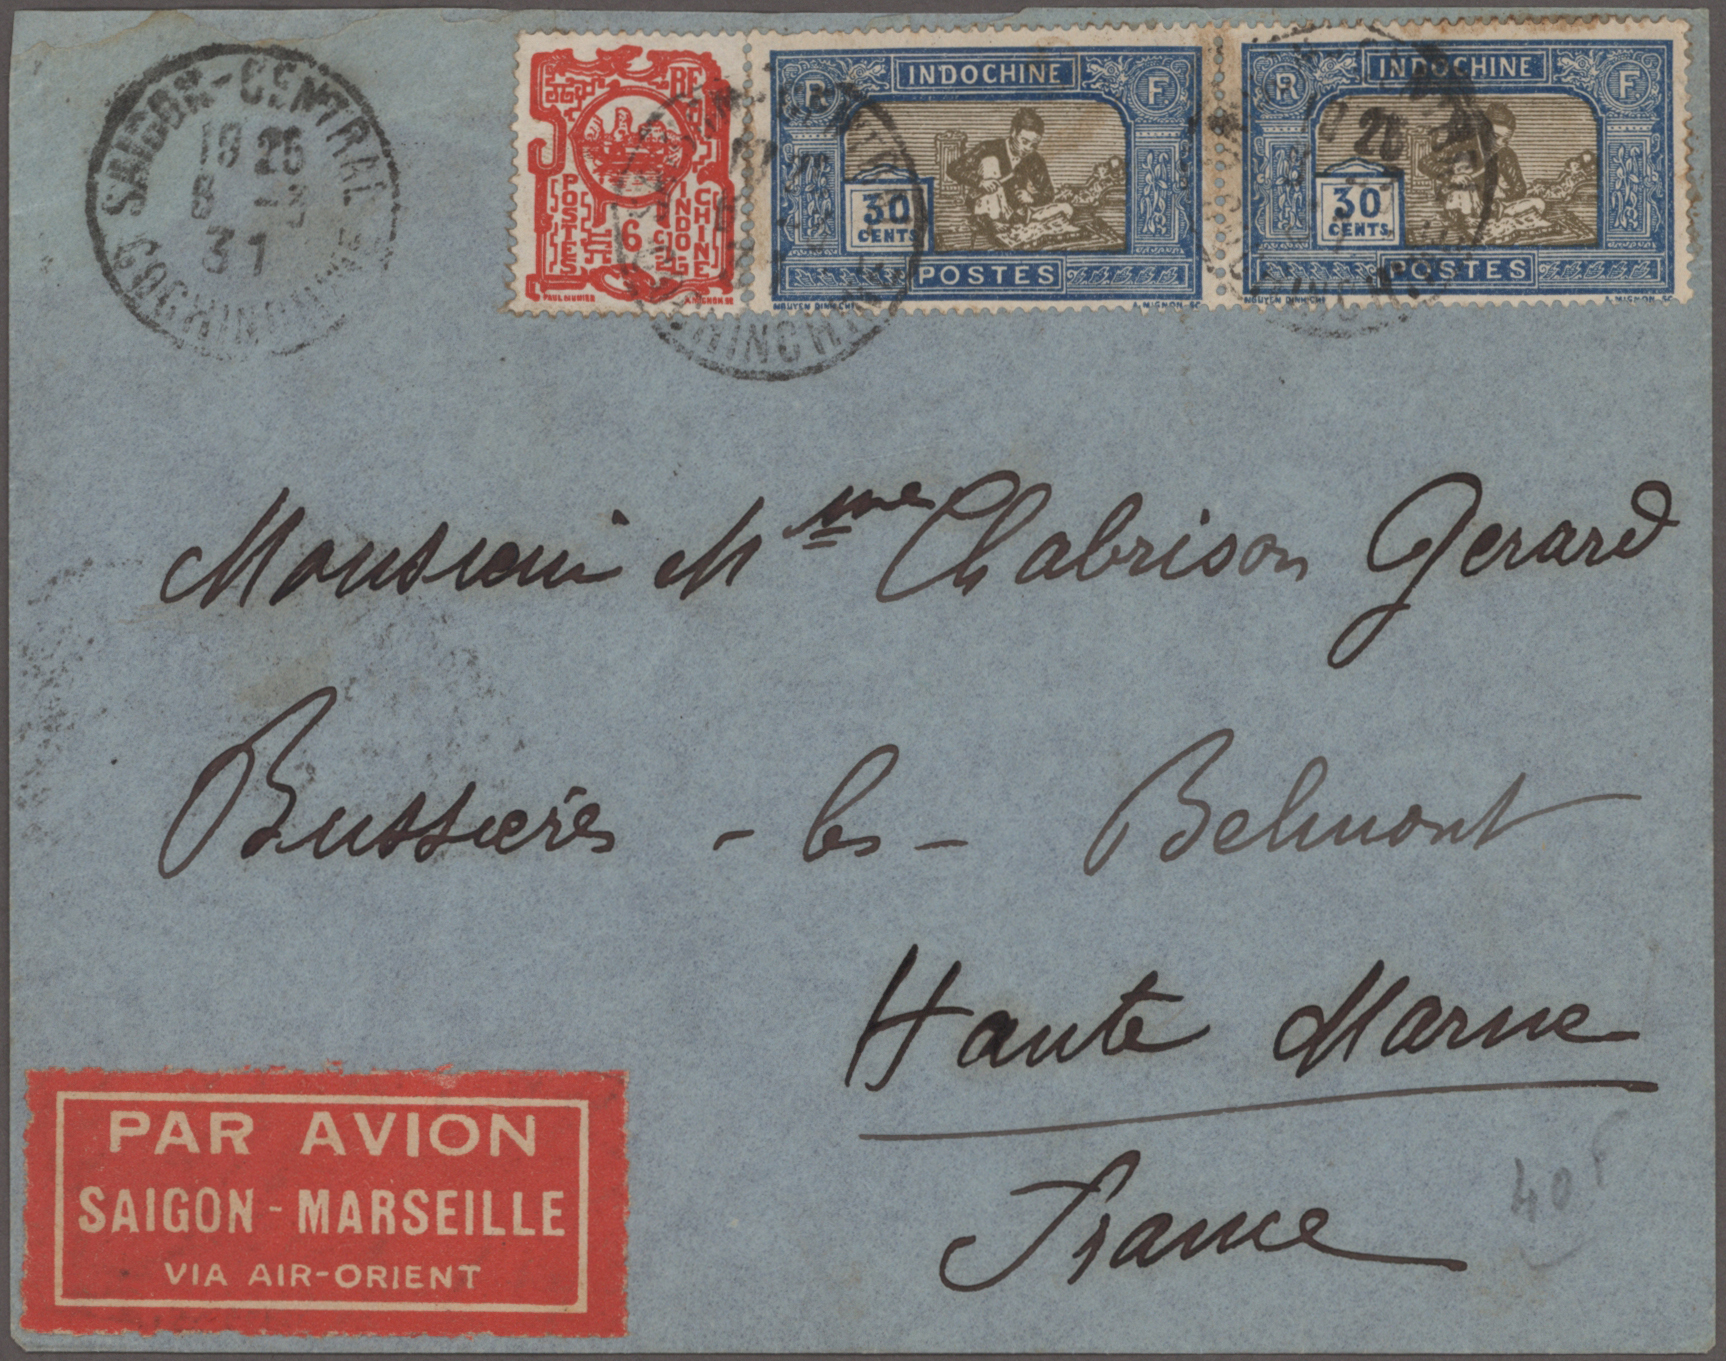 SAIGON-CENTRAL
18 25
6 -3
31
COCHINCHINE
RF
POSTES
INDO
CHINE
6
PAUL MUNIER
A. MIGNON SC
R INDOCHINE F
30
CENTS
POSTES
NGUYEN DINH CHI
A. MIGNON-SC
R INDOCHINE F
30
CENTS
POSTES
NGUYEN DINH CHI
A. MIGNON-SC
Monsieur Mme Chabrison Gerard
Bussières - les - Belmont
Haute Marne
France
40F
PAR AVION
SAIGON - MARSEILLE
VIA AIR-ORIENT